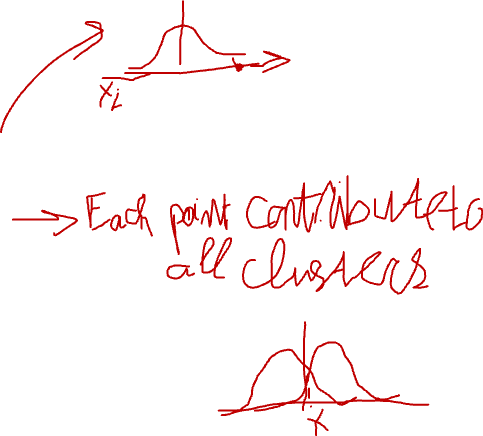 xi
→ Each point contribute to
all clusters
x